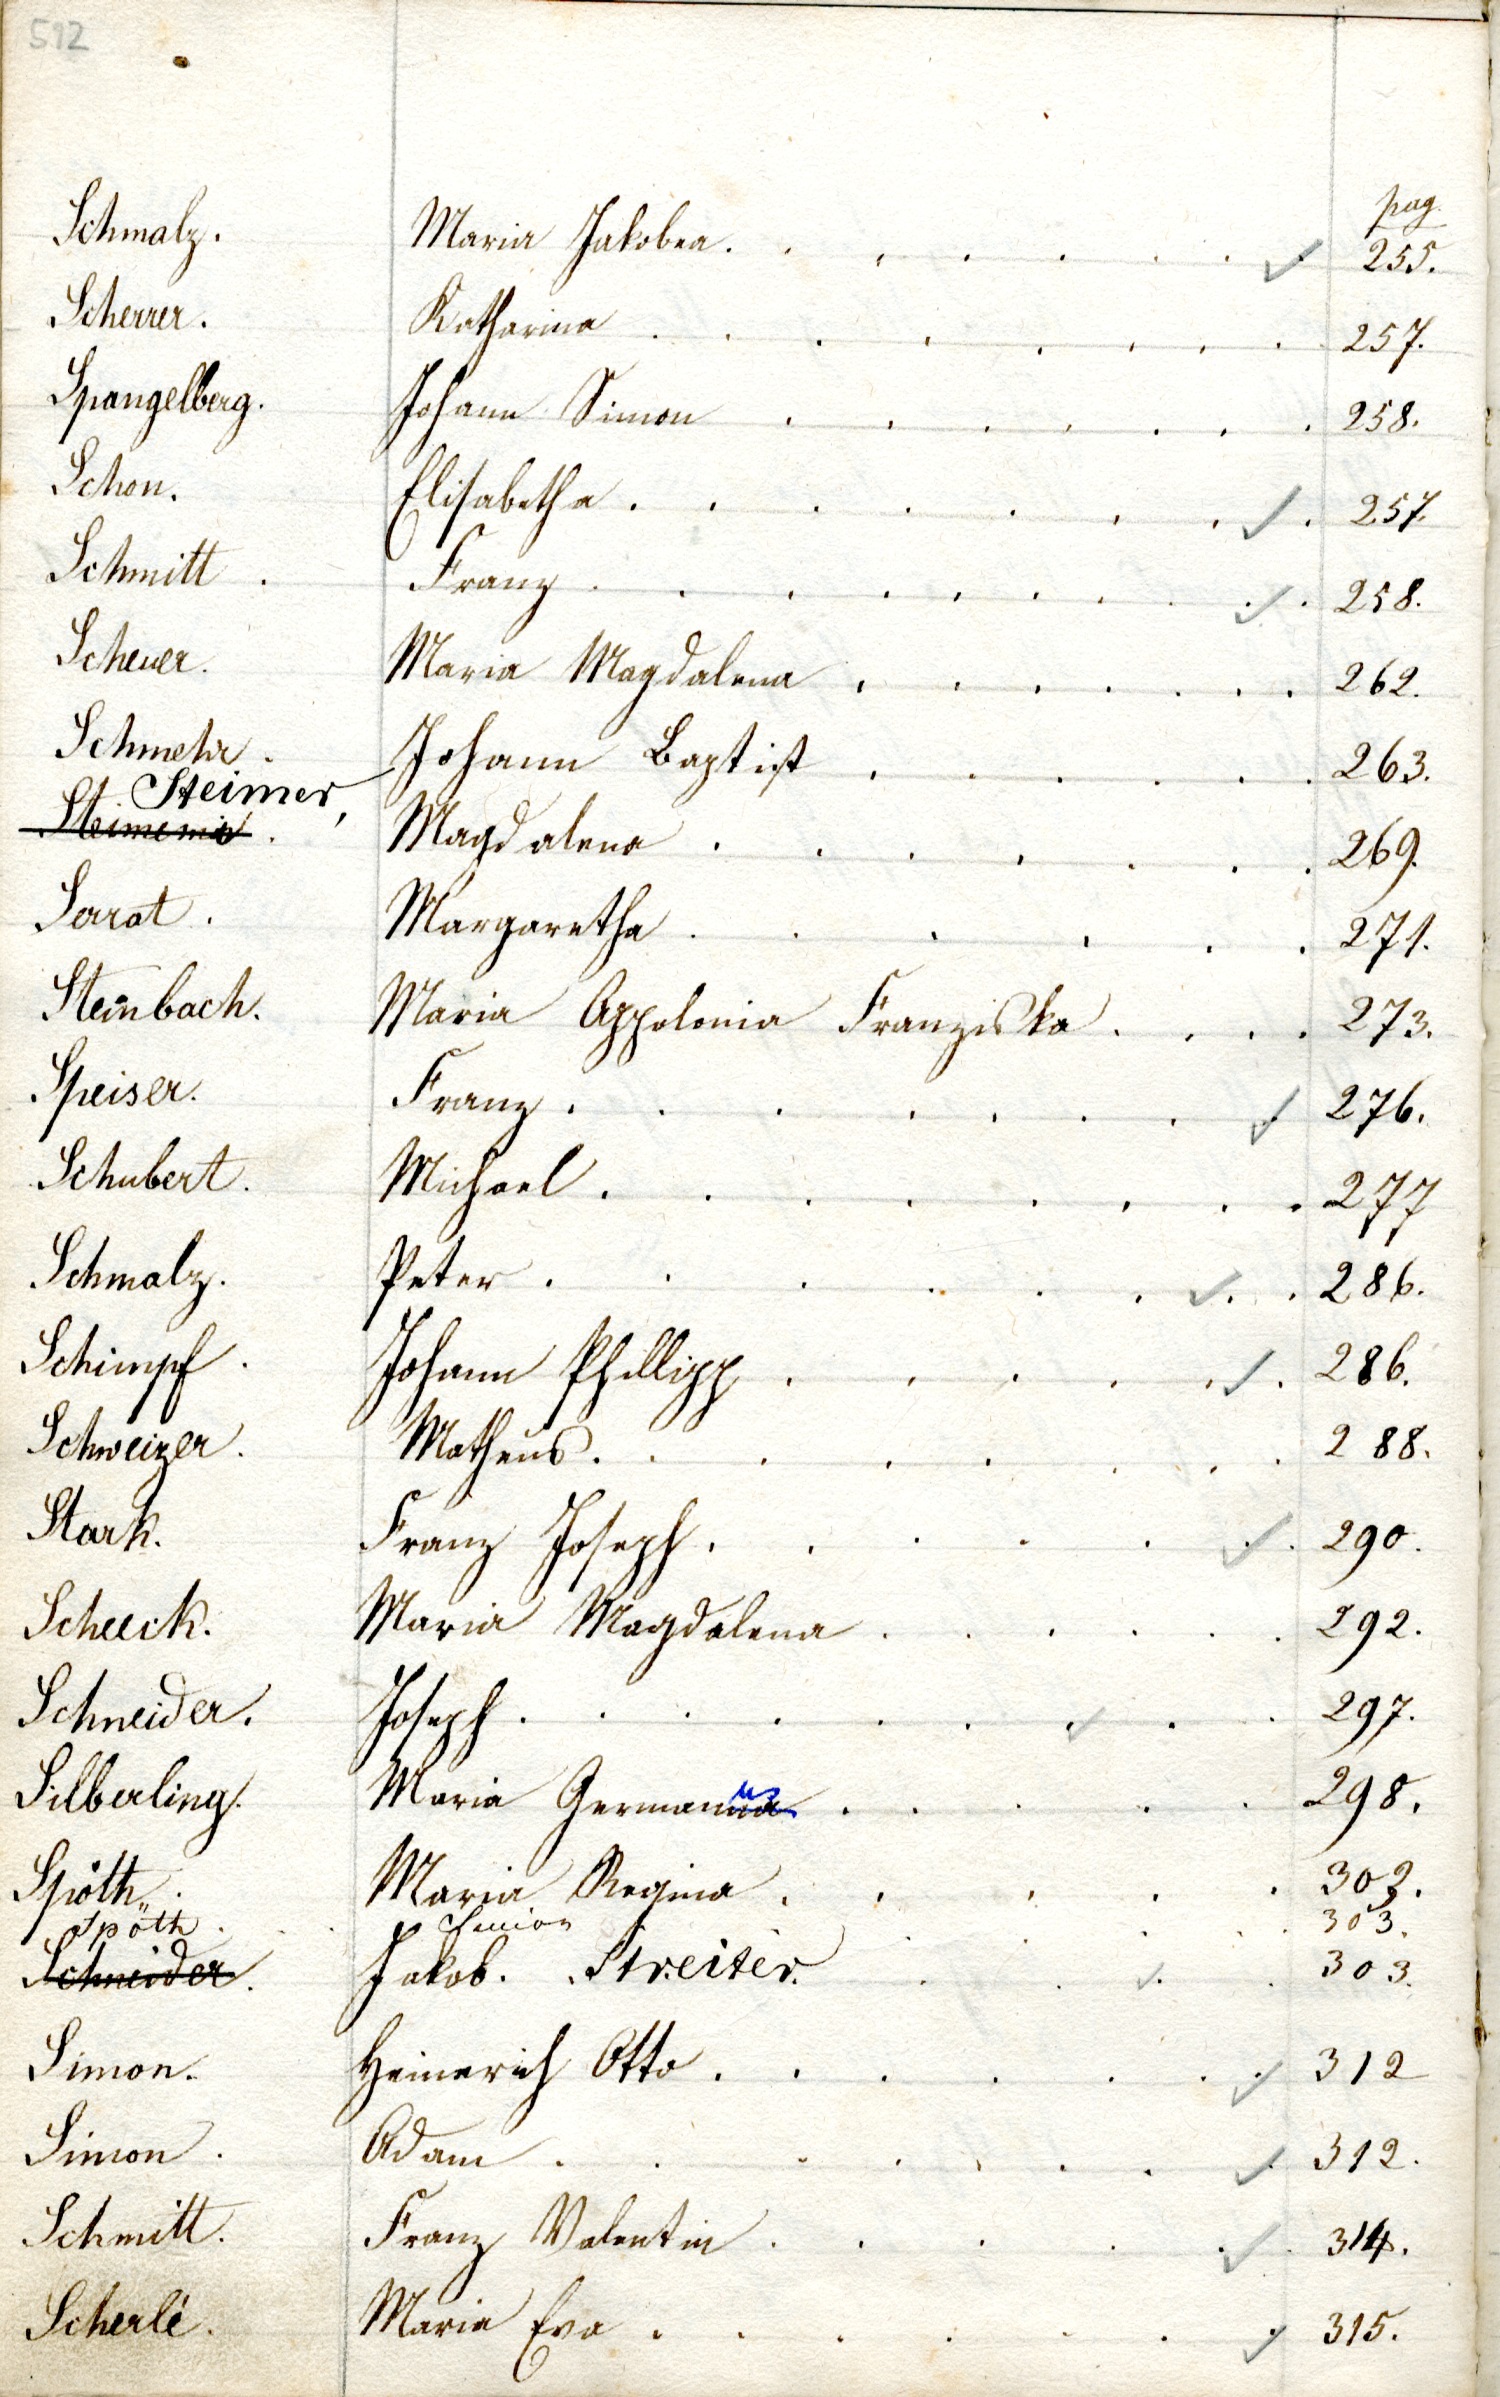 512
pag.
Schmalz. Maria Jakobea. 255.
Scherrer. Katharina 257.
Spangelberg. Johann Simon 258.
Schon. Elisabetha. 257.
Schmitt. Franz 258.
Scheuer. Maria Magdalena 262.
Schmehr. Johann Baptist 263.
Steimer,
Magdalena 269.
Serrat. Margaretha 271.
Steinbach. Maria Appolonia Franziska 273.
Speiser. Franz. 276.
Schubert. Michael. 277
Schmalz. Peter. 286.
Schimpf. Johann Phillipp 286.
Schweizer. Matheus. 288.
Stark. Franz Joseph. 290.
Scheeck. Maria Magdalena 292.
Schneider. Joseph. 297.
Silberling. Maria Germanna 298.
Spöth. Maria Regina 302.
Spöth 303.
Schneider. Jakob. Streiter. 303.
Simon. Heinerich Otto. 312
Simon. Adam 312.
Schmitt. Franz Valentin 314.
Scherlé. Maria Eva 315.